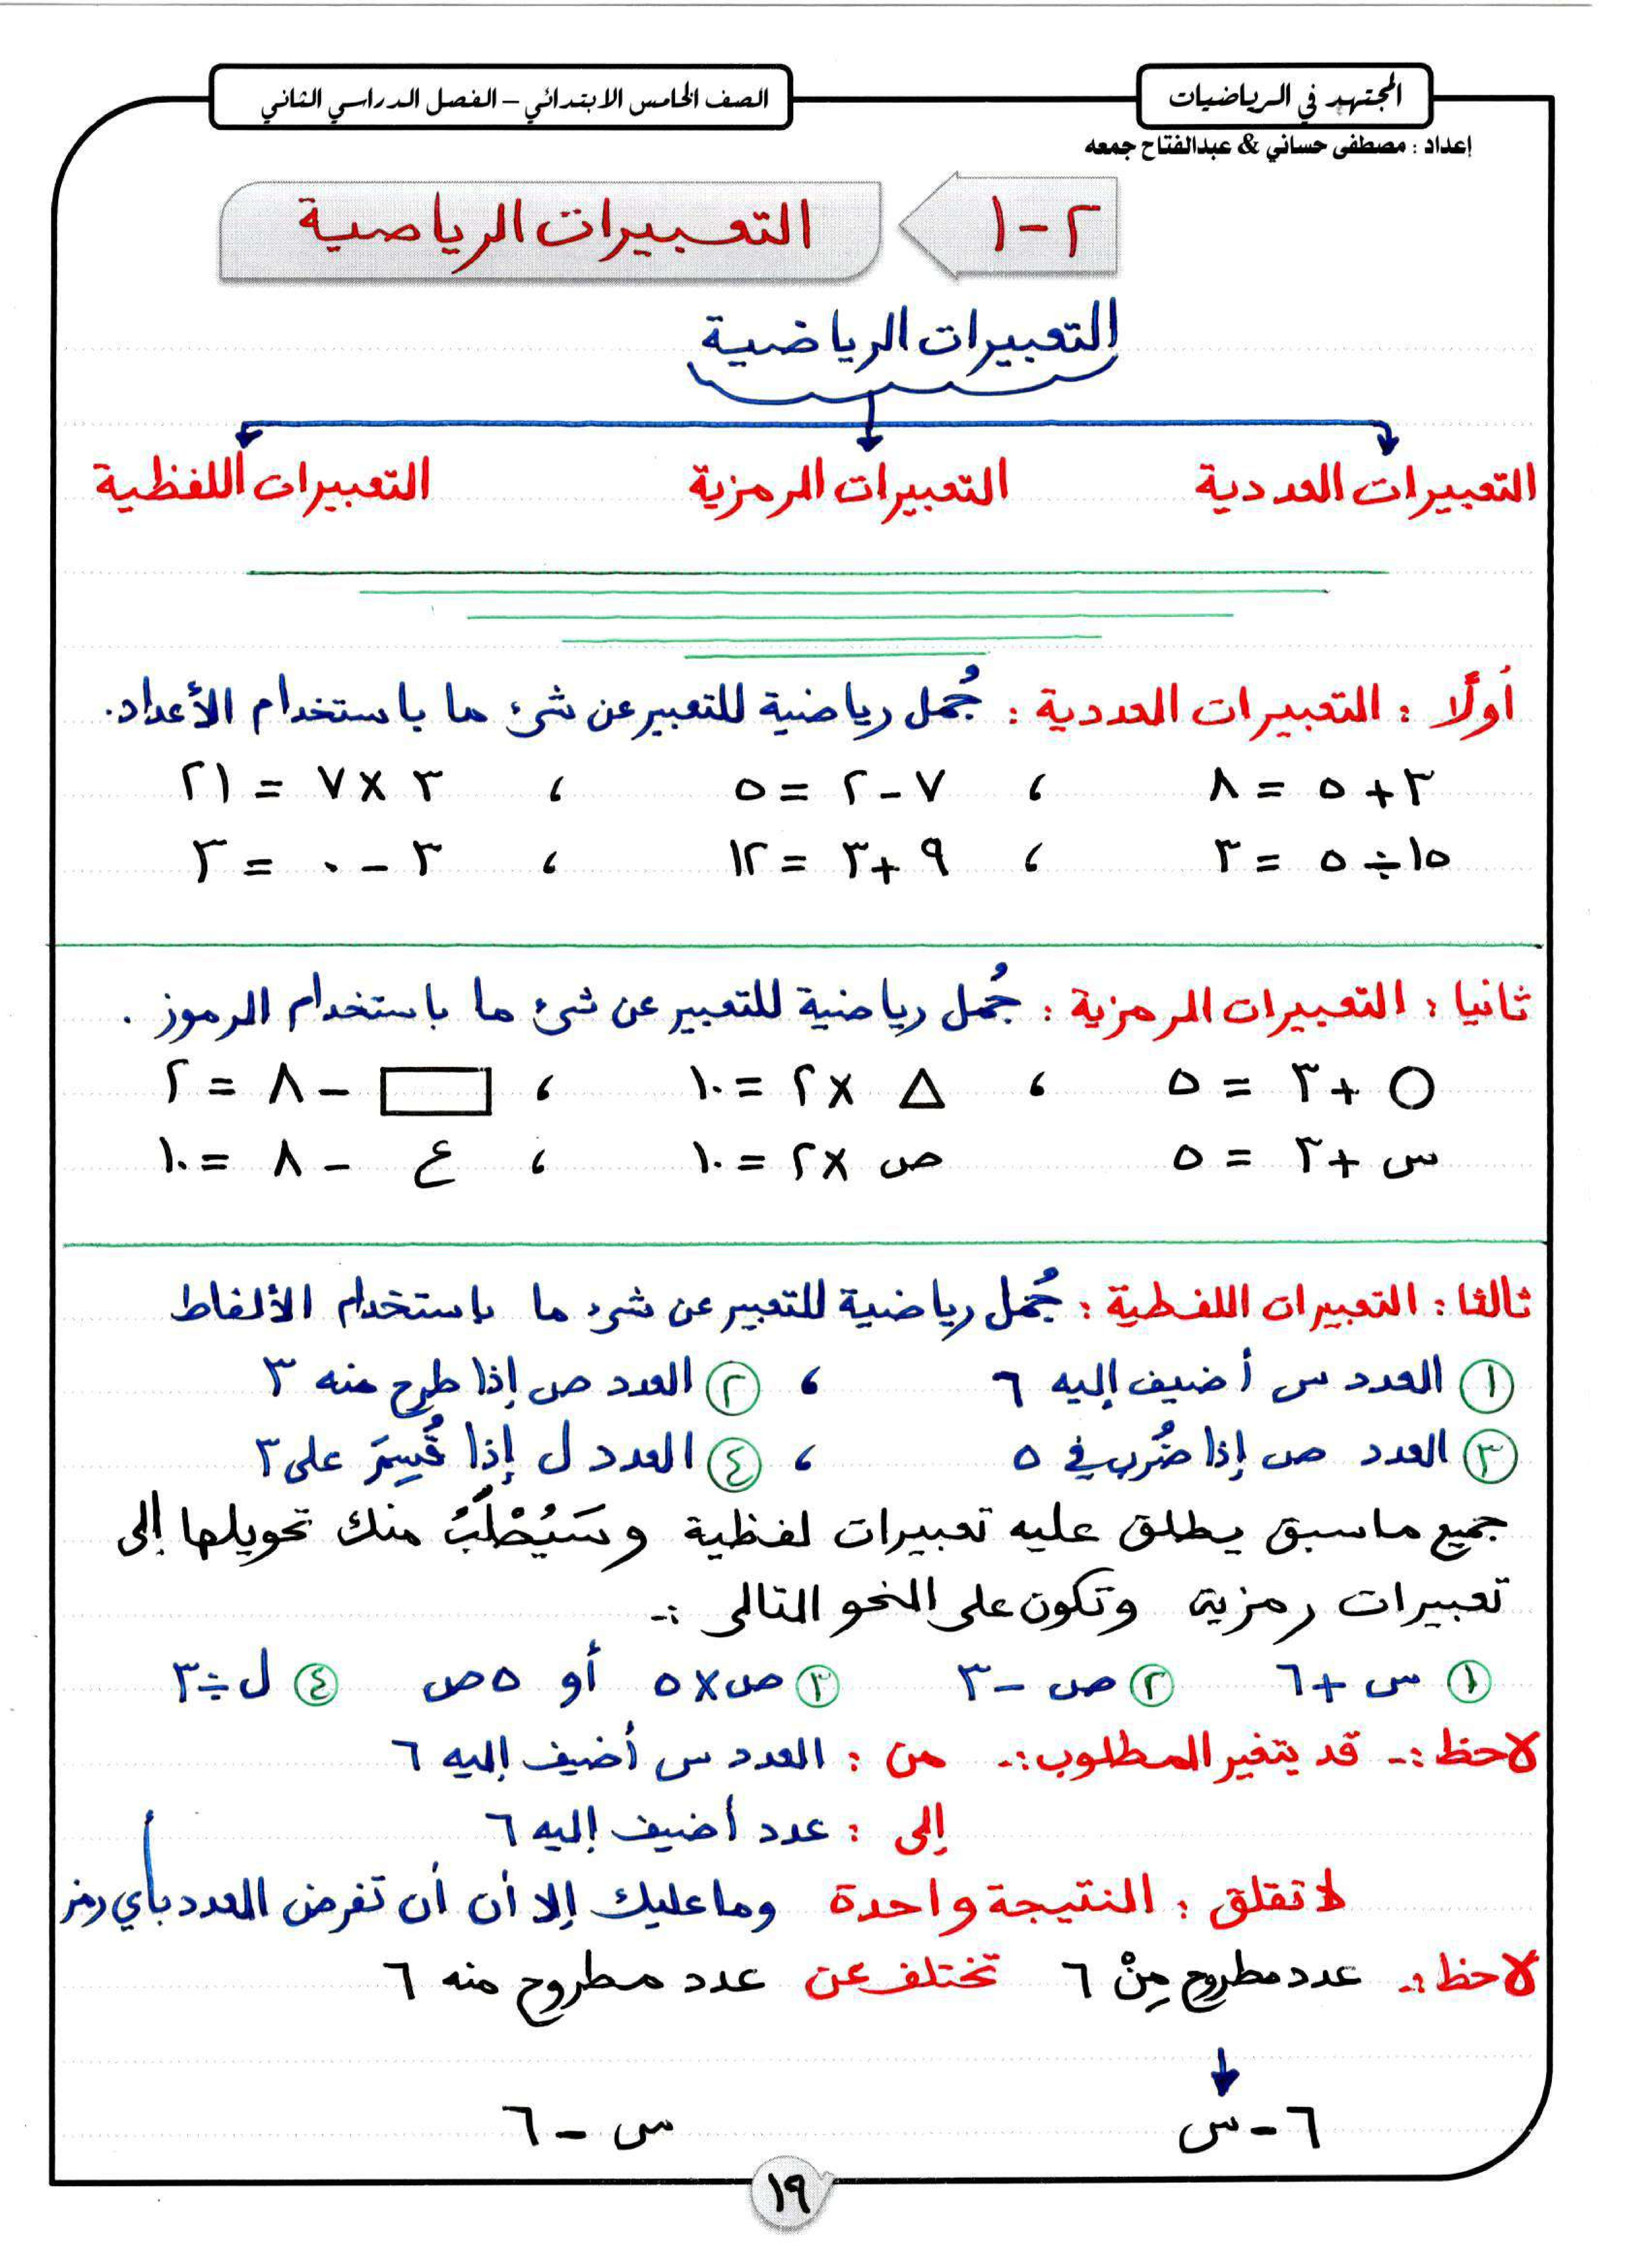 المجتهد في الرياضيات
الصف الخامس الابتدائي – الفصل الدراسي الثاني
إعداد : مصطفى حساني & عبدالفتاح جمعه
٢-١ التعبيرات الرياضية
التعبيرات الرياضية
التعبيرات العددية التعبيرات الرمزية التعبيرات اللفظية
أولًا : التعبيرات العددية : جُمل رياضية للتعبير عن شئ ما باستخدام الأعداد.
٣ + ٥ = ٨ ، ٧ - ٢ = ٥ ، ٣ × ٧ = ٢١
١٥ ÷ ٥ = ٣ ، ٩ + ٣ = ١٢ ، ٣ - ٠ = ٣
ثانيا : التعبيرات الرمزية : جُمل رياضية للتعبير عن شئ ما باستخدام الرموز .
○ + ٣ = ٥ ، △ × ٢ = ١٠ ، ▭ - ٨ = ٢
س + ٣ = ٥ ص × ٢ = ١٠ ، ع - ٨ = ١٠
ثالثا : التعبيرات اللفظية : جُمل رياضية للتعبير عن شئ ما باستخدام الألفاظ
① العدد س أضيف إليه ٦ ، ② العدد ص إذا طرح منه ٣
③ العدد ص إذا ضُرب في ٥ ، ④ العدد ل إذا قُسِمَ على ٣
جميع ماسبق يطلق عليه تعبيرات لفظية وسَيُطْلَبُ منك تحويلها إلى
تعبيرات رمزية وتكون على النحو التالى :-
① س + ٦ ② ص - ٣ ③ ص × ٥ أو ٥ ص ④ ل ÷ ٣
لاحظ :- قد يتغير المطلوب :- من : العدد س أضيف إليه ٦
إلى : عدد أضيف إليه ٦
لا تقلق : النتيجة واحدة وما عليك إلا أن أن تفرض العدد بأي رمز
لاحظ :- عدد مطروح مِنْ ٦ تختلف عن عدد مطروح منه ٦
٦ - س س - ٦
١٩